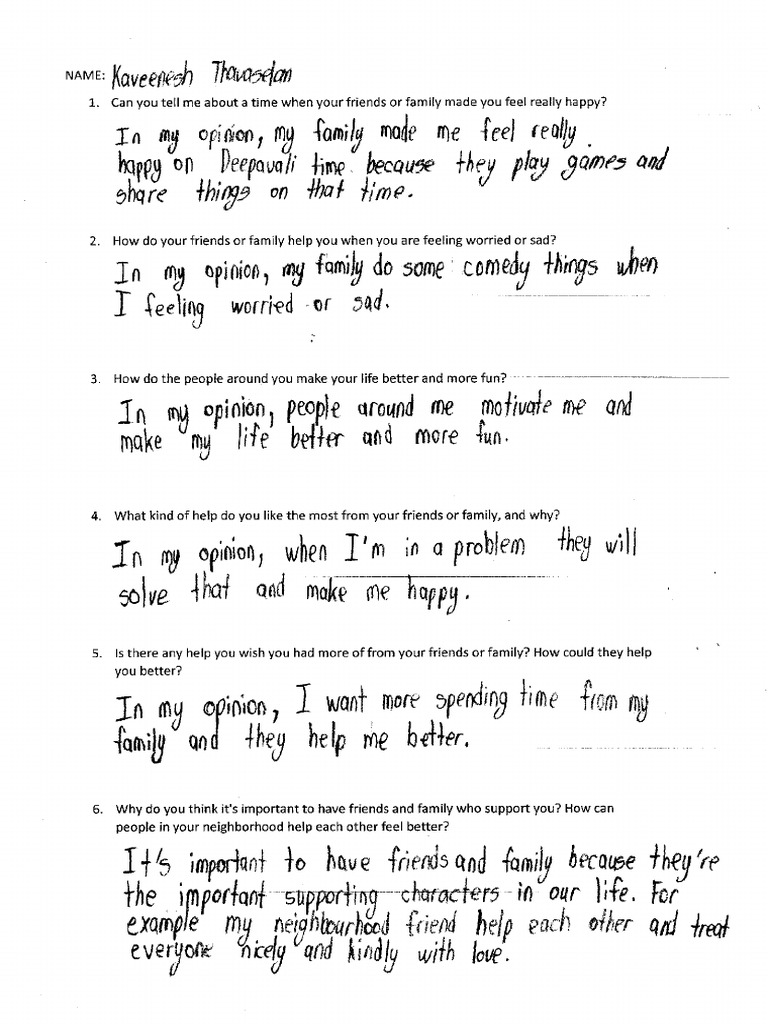 NAME: Kaveenesh Thavaselan
1. Can you tell me about a time when your friends or family made you feel really happy?
In my opinion, my family made me feel really
happy on Deepavali time because they play games and
share things on that time.
2. How do your friends or family help you when you are feeling worried or sad?
In my opinion, my family do some comedy things when
I feeling worried or sad.
3. How do the people around you make your life better and more fun?
In my opinion, people around me motivate me and
make my life better and more fun.
4. What kind of help do you like the most from your friends or family, and why?
In my opinion, when I'm in a problem they will
solve that and make me happy.
5. Is there any help you wish you had more of from your friends or family? How could they help
you better?
In my opinion, I want more spending time from my
family and they help me better.
6. Why do you think it's important to have friends and family who support you? How can
people in your neighborhood help each other feel better?
It's important to have friends and family because they're
the important supporting characters in our life. For
example my neighbourhood friend help each other and treat
everyone nicely and kindly with love.